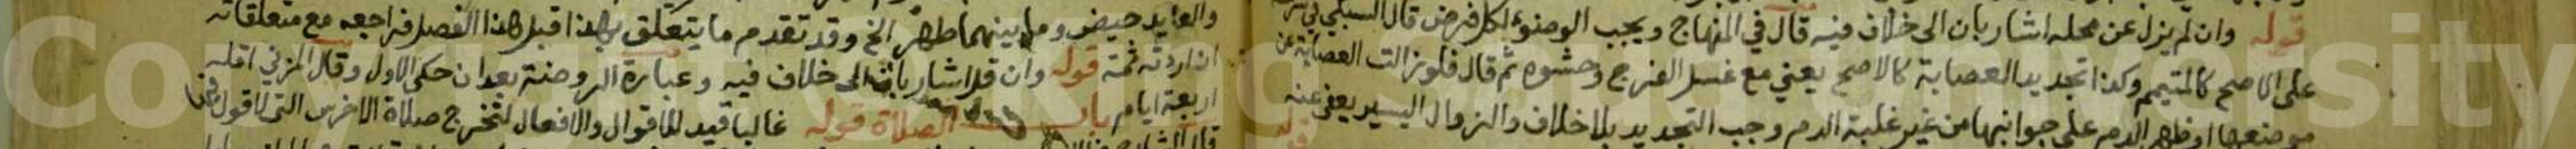 قوله وان لم يزل عن محله اشار بان الى خلاف فيه قال في المنهاج ويجب الوضوء لكل فرض قال السبكي في شرحه
على الاصح كالمتيمم وكذا تجديد العصابة كالاصح يعني مع غسل الفرج وحشوه ثم قال فلو زالت العصابة عن
موضعها او ظهر الدم على جوانبها من غير غلبة الدم وجب التجديد بلا خلاف والزوال اليسير يعفى عنه
والعايد حيض وما بينهما طهر الخ وقد تقدم ما يتعلق بهذا قبل هذا الفصل فراجعه مع متعلقاته
ان اردته ثمة قوله وان قل اشار بان الى خلاف فيه وعبارة الروضة بعد ان حكى الاول وقال المزني اقله
اربعة ايام باب الصلاة قوله غالبا قيد للاقوال والافعال لتخرج صلاة الاخرس التي لا قول فيها